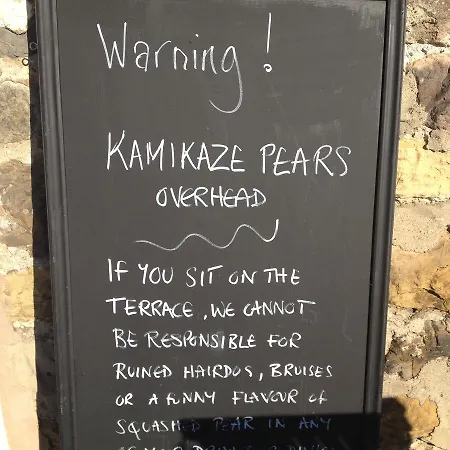 Warning!
KAMIKAZE PEARS
OVERHEAD
IF YOU SIT ON THE
TERRACE, WE CANNOT
BE RESPONSIBLE FOR
RUINED HAIRDOS, BRUISES
OR A FUNNY FLAVOUR OF
SQUASHED PEAR IN ANY